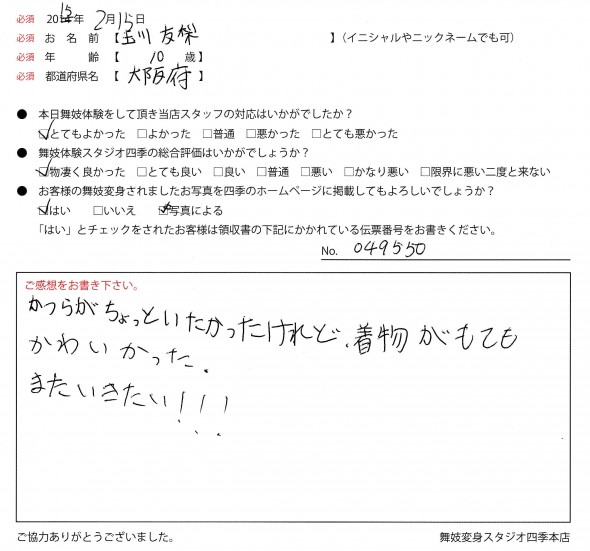 必須 2015年 2月15日
必須 お名前【玉川 友梨 】（イニシャルやニックネームでも可）
必須 年齢【 10 歳】
必須 都道府県名【 大阪府 】
● 本日舞妓体験をして頂き当店スタッフの対応はいかがでしたか？
☑とてもよかった □よかった □普通 □悪かった □とても悪かった
● 舞妓体験スタジオ四季の総合評価はいかがでしょうか？
☑物凄く良かった □とても良い □良い □普通 □悪い □かなり悪い □限界に悪い二度と来ない
● お客様の舞妓変身されましたお写真を四季のホームページに掲載してもよろしいでしょうか？
☑はい □いいえ ☑写真による
「はい」とチェックをされたお客様は領収書の下記にかかれている伝票番号をお書きください。
No. 049550
ご感想をお書き下さい。
かつらがちょっといたかったけれど、着物がもても
かわいかった.
またいきたい!!!
ご協力ありがとうございました。 舞妓変身スタジオ四季本店